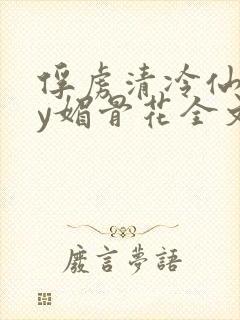 俘虏清冷仙
y媚骨花全文
废言梦語